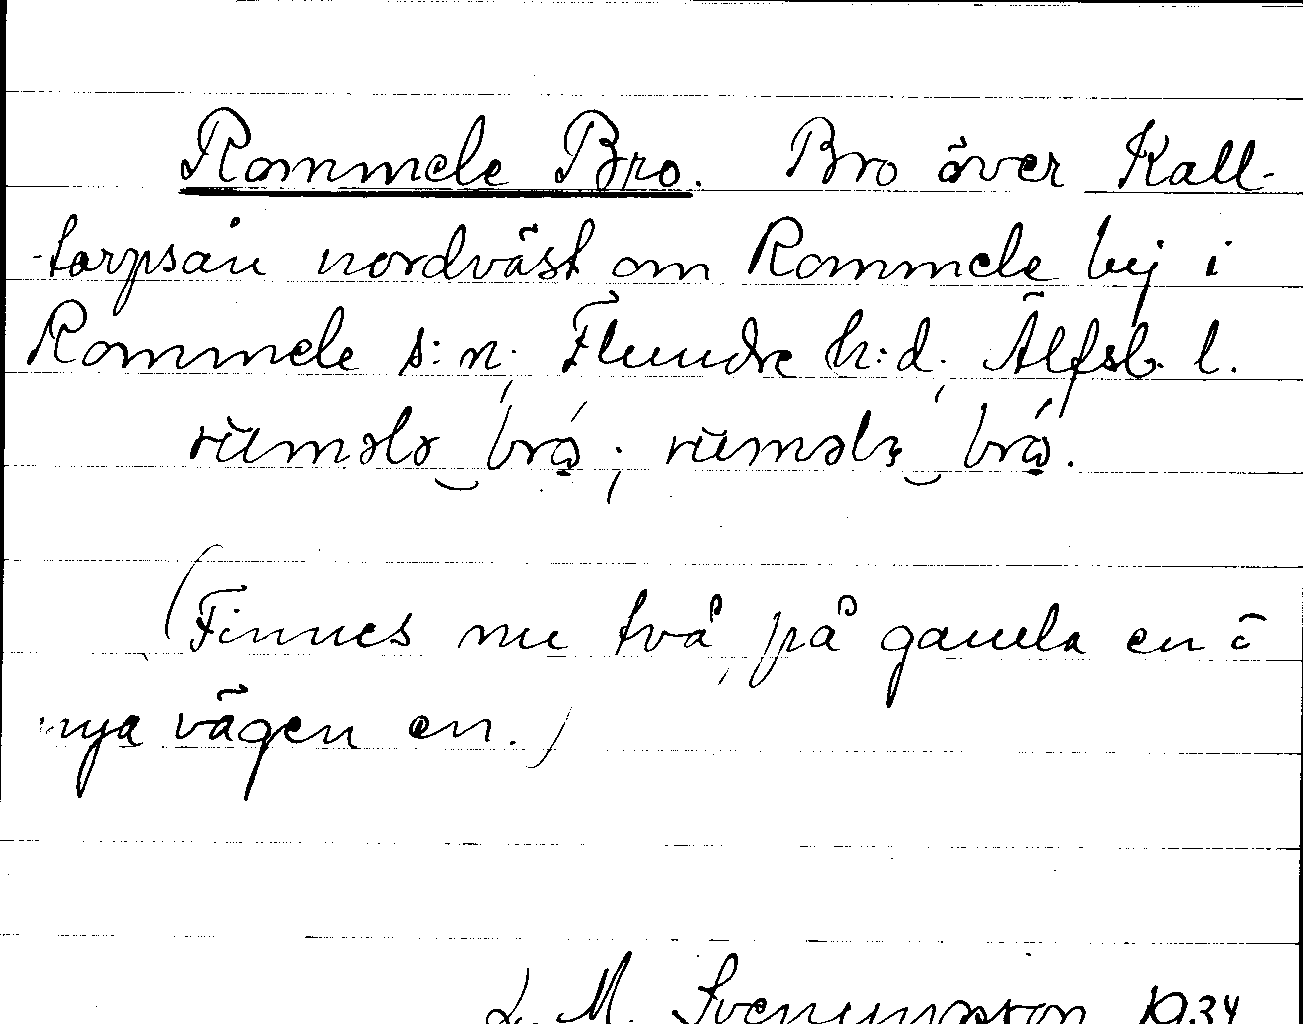 Rommele Bro. Bro över Kall-
-torpsån nordväst om Rommele by i
Rommele s:n, Flundre h:d, Älfsb. l.
(Finnes nu två, på gamla en ō
nya vägen en.)
L. M. Svenungsson 1934